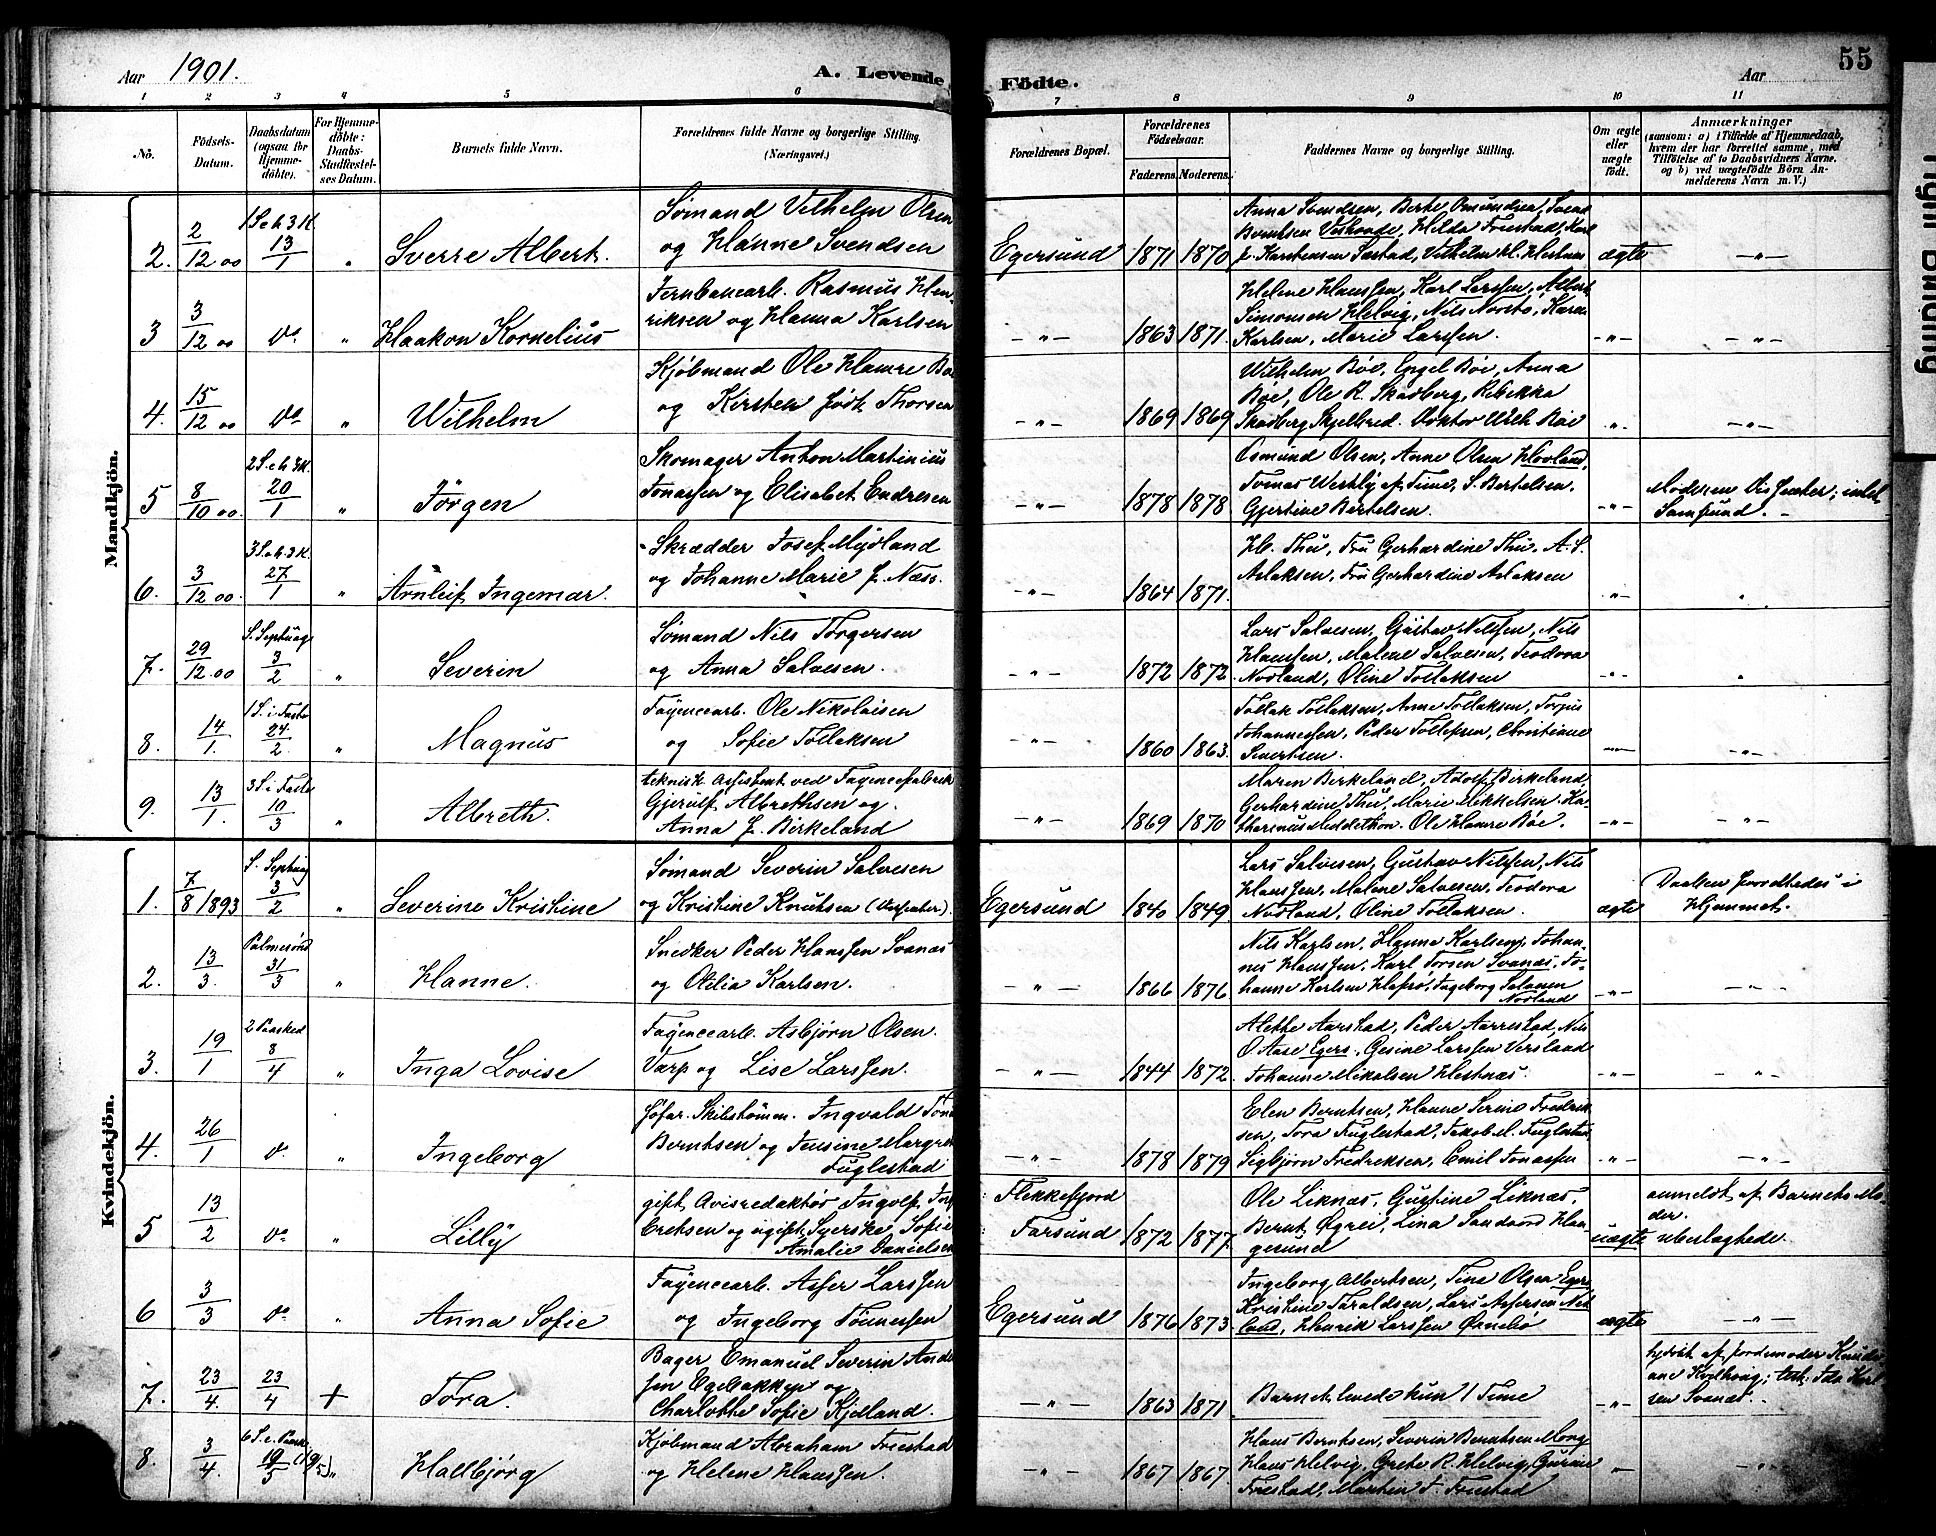 Aar 1901.
A. Levende Födte.
Aar
55
1 2 3 4 5 6 7 8 9 10 11
No.
Födsels-Datum.
Daabsdatum (ogsaa for Hjemme-döbte).
For Hjemme-döbte: Daabs-Stadfæstel-ses Datum.
Barnets fulde Navn.
Forældrenes fulde Navne og borgerlige Stilling. (Næringsvei.)
Forældrenes Bopæl.
Forældrenes Födselsaar.
Faderens. Moderens.
Faddernes Navne og borgerlige Stilling.
Om ægte eller uægte födt.
Anmærkninger
(saasom: a) i Tilfælde af Hjemmedaab,
hvem der har forrettet samme, med
Tilföielse af to Daabsvidners Navne.
og b) ved uægtefödte Börn An-
melderens Navn m. V.)
Mandkjön.
2. 2/12 00
1 S. e. h. 3 K. 13/1
"
Sverre Albert.
Sømand Vilhelm Olsen
og Hanne Svendsen
Egersund
1871 1870
Anna Svendsen, Berte Omundsen, Svend
Berntsen Veshovde, Hilda Friestad, Karl
J. Karstensen Sæstad, Vilhelm Kl. Hestnes
ægte
-"-
3 3/12 00
do
"
Haakon Kornelius
Jernbanearb. Rasmus Hen-
riksen og Hanna Karlsen
-"-
1863 1871.
Helene Hanssen, Karl Larssen, Albert
Simonsen Helvig, Nils Norebø, Karen
Karlsen, Marie Larssen.
-"-
-"-
4. 15/12 00
do
"
Wilhelm
Kjøbmand Ole Hamre Bøe
og Kirsten født Thorsen
-"-
1869 1869
Wilhelm Böe, Engel Böe, Anna
Böe, Ole R. Skadberg, Rebekka
Skadberg Skjelbred. Doktor Ulrk Böe
-"-
-"-
5 8/10 00
2 S. e. h. 3 K. 20/1
"
Jörgen
Skomager Anton Martinius
Jonassen og Elisabet Endresen
-"-
1878 1878
Osmund Olsen, Anne Olsen Hovland,
Tomas Werkly af Time, S. Bertelsen,
Gjertine Bertelsen.
-"-
Moderen Dissenter; intet
Samfund. -
6. 3/12 00.
3 S. e. h. 3 K. 27/1
"
Arnleif Ingemar.
Skrædder Josef Mydland
og Johanne Marie f. Næss.
-"-
1864 1871.
H. Thu, Fru Gerhardine Thu, A. S.
Aslaksen, Fru Gerhardine Aslaksen
-"-
"
7. 29/12 00
S. Septuag. 3/2
"
Severin
Sømand Nils Torgersen
og Anna Salvesen.
-"-
1872 1872
Lars Salvesen, Gustav Nilssen, Nils
Hanssen, Malene Salvesen, Teodora
Nodland, Oline Tollaksen
-"-
"
8. 14/1.
1 S. i Faste 24/2.
"
Magnus
Fayencearb. Ole Nikolaisen
og Sofie Tollaksen
-"-
1860 1863.
Tollak Tollaksen, Anne Tollaksen, Torjus
Johannessen, Peder Tollefsen, Christiane
Sivertsen.
-"-
-"-
9. 13/1.
3 S. i Faste 10/3
"
Albreth.
teknisk Assistent ved Fayencefabrik
Gjerulf Albrethsen og
Anna f. Birkeland
-"-
1869 1870
Maren Birkeland, Adolf Birkeland,
Gerhardine Thu, Marie Mikkelsen. Ka-
tharinus Meddelthon. Ole Hamre Böe.
-"-
-"-
Kvindekjön.
1. 7/8 1893
S. Septuag 3/2
"
Severine Kristine
Sømand Severin Salvesen
og Kristine Knutsen (Dissenter).
Egersund
1840 1849
Lars Salvesen, Gustav Nilssen, Nils
Hanssen, Malene Salvesen, Teodora
Nodland, Oline Tollaksen.
ægte
Daaben forrettedes i
Hjemmet.
2. 13/3.
Palmesønd 31/3
"
Hanne.
Snedker Peder Hanssen Svanæs
og Otilia Karlsen.
-"-
1866 1876
Nils Karlsen, Hanne Karlsen, Johan-
nes Hanssen, Karl Torsen Svanæs, Jo-
hanne Karlsen Hafsø, Ingeborg Salvesen
Nodland
-"-
-"-
3. 19/1
2 Paasked 8/4
"
Inga Lovise
Fayencearb. Asbjørn Olsen
Varp og Lise Larssen.
-"-
1844 1872.
Alette Aarstad, Peder Aarrestad, Nils
O. Aase Egers., Gesine Larssen Versland
Johanne Mikalsen Hestnæs.
-"-
-"-
4. 26/1
do
"
Ingeborg
Bernhsen og Jensine Margret
Fuglestad
-"-
1878 1879
Elen Berntsen, Hanne Serine Fredrik-
sen, Tora Fuglestad, Jakob M. Fuglestad
Sigbjørn Fredriksen, Emil Jonassen
-"-
-"-
5 13/2
do
"
Lilly
gift Avisredaktør Ingolf
Eriksen og ugift Syerske Sofie
Amalie Danielsen
Flekkefjord
Farsund
1872 1877.
Ole Liknæs, Gustine Liknæs,
Bernt Øgrei, Lina Sandvord Hau
gesund
uægte
anmeldt af Barnets Mo
der.
uberlagtede
6 3/3
do
"
Anna Sofie
Fayencearb. Asser Larssen
og Ingeborg Tönnessen
Egersund
1876 1873.
Ingeborg Albertsen, Tina Olsen Egers
Kristine Taraldsen, Lars Assersen Net
land, Henrik Larssen Ørnebø
ægte
-"-
7. 23/4.
23/4
+
Tora.
Bager Emanuel Severin Ander
sen Egebakken og
Charlotte Sofie Kjelland.
-"-
1863 1871
Barnet levede kun 1 Time
-"-
hjdøbt af Jordemoder Knudi
ane Kvelhaug; test. Ida Karl
sen Svanæs.
8. 3/4.
6 S. e. Paaske 19/5 (19/5)
"
Hallbjørg
Kjøbmand Abraham Friestad
og Helene Hanssen.
-"-
1867 1867.
Hans Berntsen, Severin Berntsen Mong
Hans Helvig, Grete R. Helvig, Gurine
Friestad, Marten T. Friestad
"
-"-